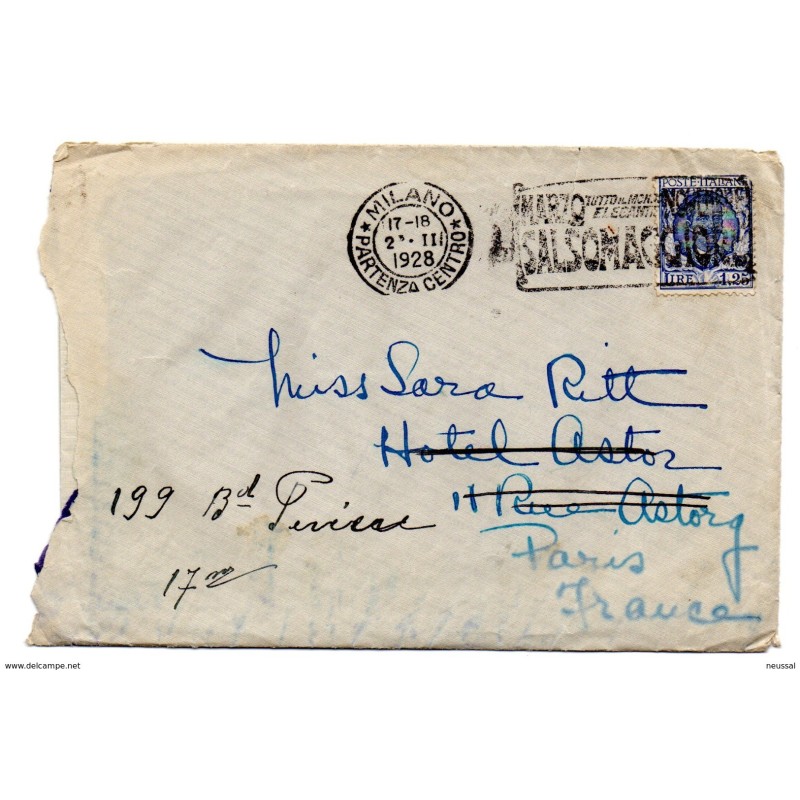 MILANO
17-18
III
1928
PARTENZA CENTRO
MARZO TUTTO IL MON
ELEGANTE
SALSOMAG
POSTE ITALIANE
LIRE 1.25
Miss Sara Ritt
Hotel Astor
11 Rue Astorg
Paris
France
199 Bd Pereire
17me
www.delcampe.net
neussal